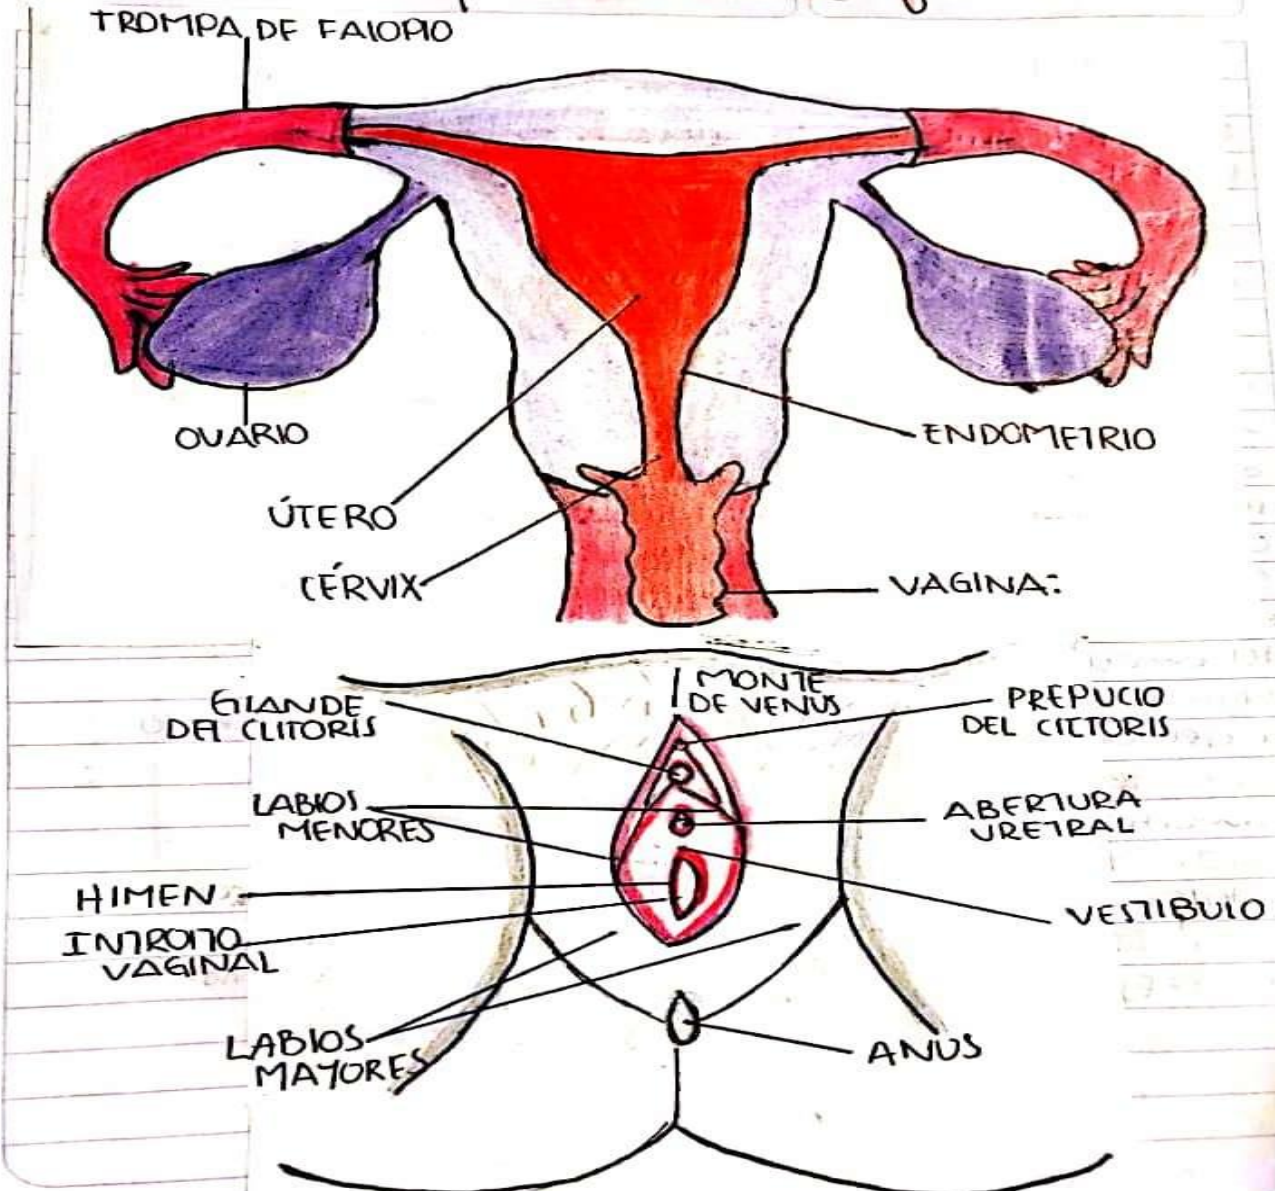 TROMPA DE FALOPIO
OVARIO
ÚTERO
CÉRVIX
ENDOMETRIO
VAGINA:
MONTE
DE VENUS
GLANDE
DEL CLITORIS
PREPUCIO
DEL CLITORIS
LABIOS
MENORES
ABERTURA
URETRAL
HIMEN
VESTIBULO
INTROITO
VAGINAL
LABIOS
MAYORES
ANUS